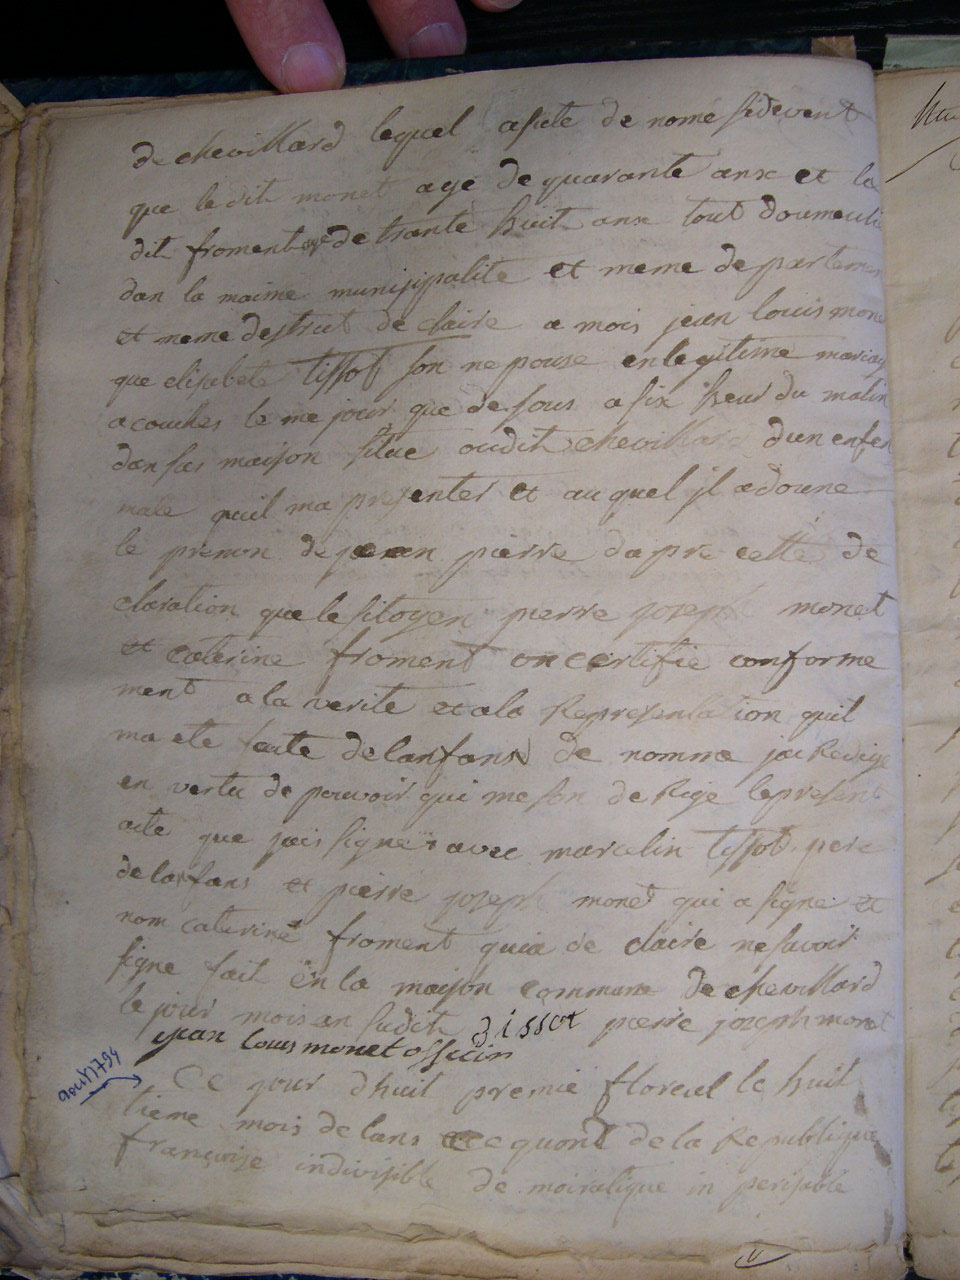 de chevillard lequel asiste de nome sidevent
que le dit monet age de quarante anx et la
dit froment de trante huit anx tout doumeulie
dan la maime munisipalite et meme departemen
et meme destrict de claire a mois jean louis mone
que elisabete tissot son ne pouse en legitime mariag
a couches le me jour que de sous a six heur du matin
dan sas maison situe oudit chevillard dun enfen
male quil ma presenter et au quel jl a doune
le prenon de jean pierre dapre cette de
claration que le sitoyen pierre joseph monet
et caterine froment on certifie conforme
ment a la verite et a la Representation quil
ma ete faite de lanfans de nomme jai Redige
en vertu de pouvoir qui me son de Rige le present
acte que jais signe avec marcelin tissot pere
de lanfans et pierre joseph monet qui a signe et
nom caterine froment quia de claire ne savoir
signe fait en la maison commune de chevillard
le jour mois an sudit tissot pierre joseph monet
jean louis monet officin
aout 1794
Ce jour dhuit premie floreul le huit
tieme mois de lans quond de la Republique
francoise indivisible de moicratique in perisable